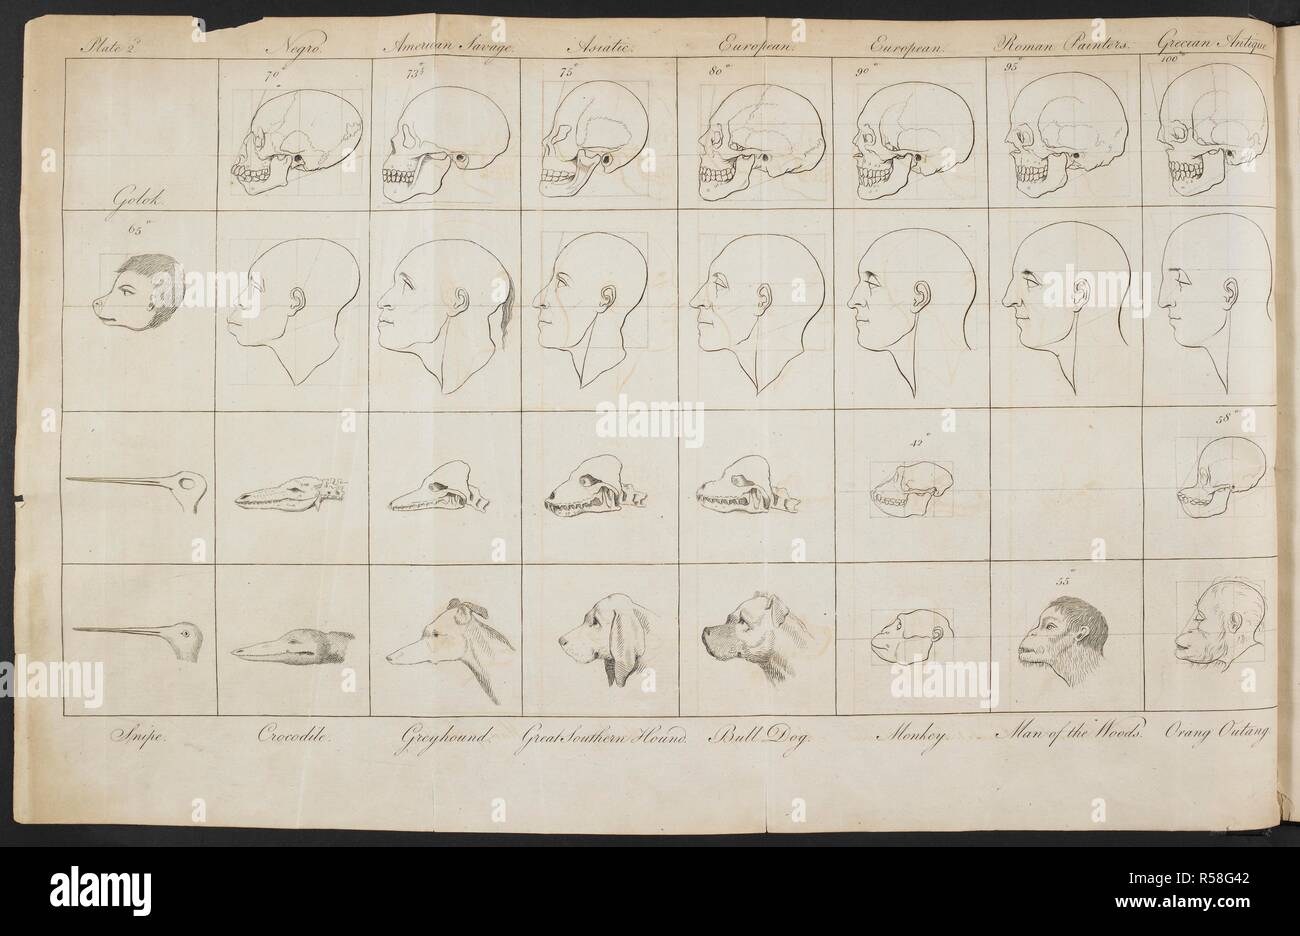 Plate 2d. Negro. American Savage. Asiatic. European. European. Roman Painters. Grecian Antique
70° 73½° 75° 80° 90° 95° 100°
Golok.
65°
42° 58°
55°
Snipe. Crocodile. Greyhound. Great Southern Hound. Bull Dog. Monkey. Man of the Woods. Orang Outang.
alamy
Image ID: R58G42
www.alamy.com